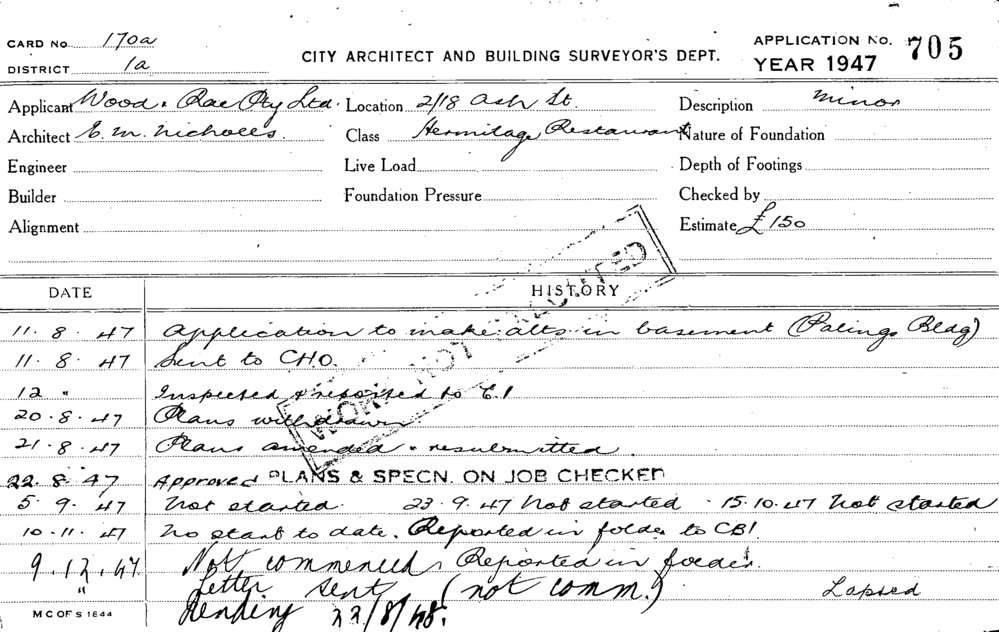 CARD No. 170a
DISTRICT 1a
CITY ARCHITECT AND BUILDING SURVEYOR'S DEPT.
APPLICATION No. 705
YEAR 1947
Applicant Wood & Rae Pty Ltd. Location 2/18 Ash St. Description Minor
Architect E. M. Nicholls. Class Hermitage Restaurant Nature of Foundation
Engineer Live Load Depth of Footings
Builder Foundation Pressure Checked by
Alignment Estimate £150
WORK NOT EXECUTED
DATE HISTORY
11. 8. 47 Application to make alts. in basement (Palings Bldg)
11. 8. 47 Sent to CHO.
12 " Inspected & reported to C.I
20. 8. 47 Plans withdrawn
21. 8. 47 Plans amended & resubmitted.
22. 8. 47 Approved PLANS & SPECN. ON JOB CHECKED
5. 9. 47 Not started. 23. 9. 47 Not started. 15.10.47 Not started
10. 11. 47 No start to date. Reported in folder to CBI.
9. 12. 47. Not commenced. Reported in folder.
" Letter sent (not comm.) Lapsed
Pending 22/8/48.
M C OF S 1844